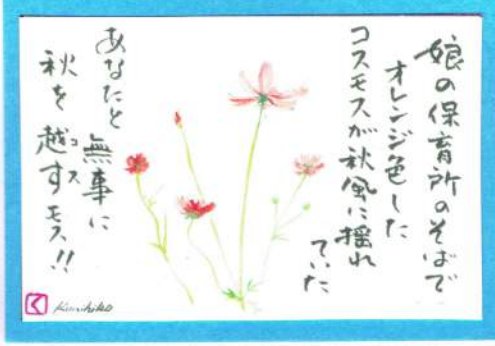 娘の保育所のそばで
オレンジ色した
コスモスが秋風に揺れ
ていた
あなたと無事に
秋を越すモス!!
コス
く
Kunihiko